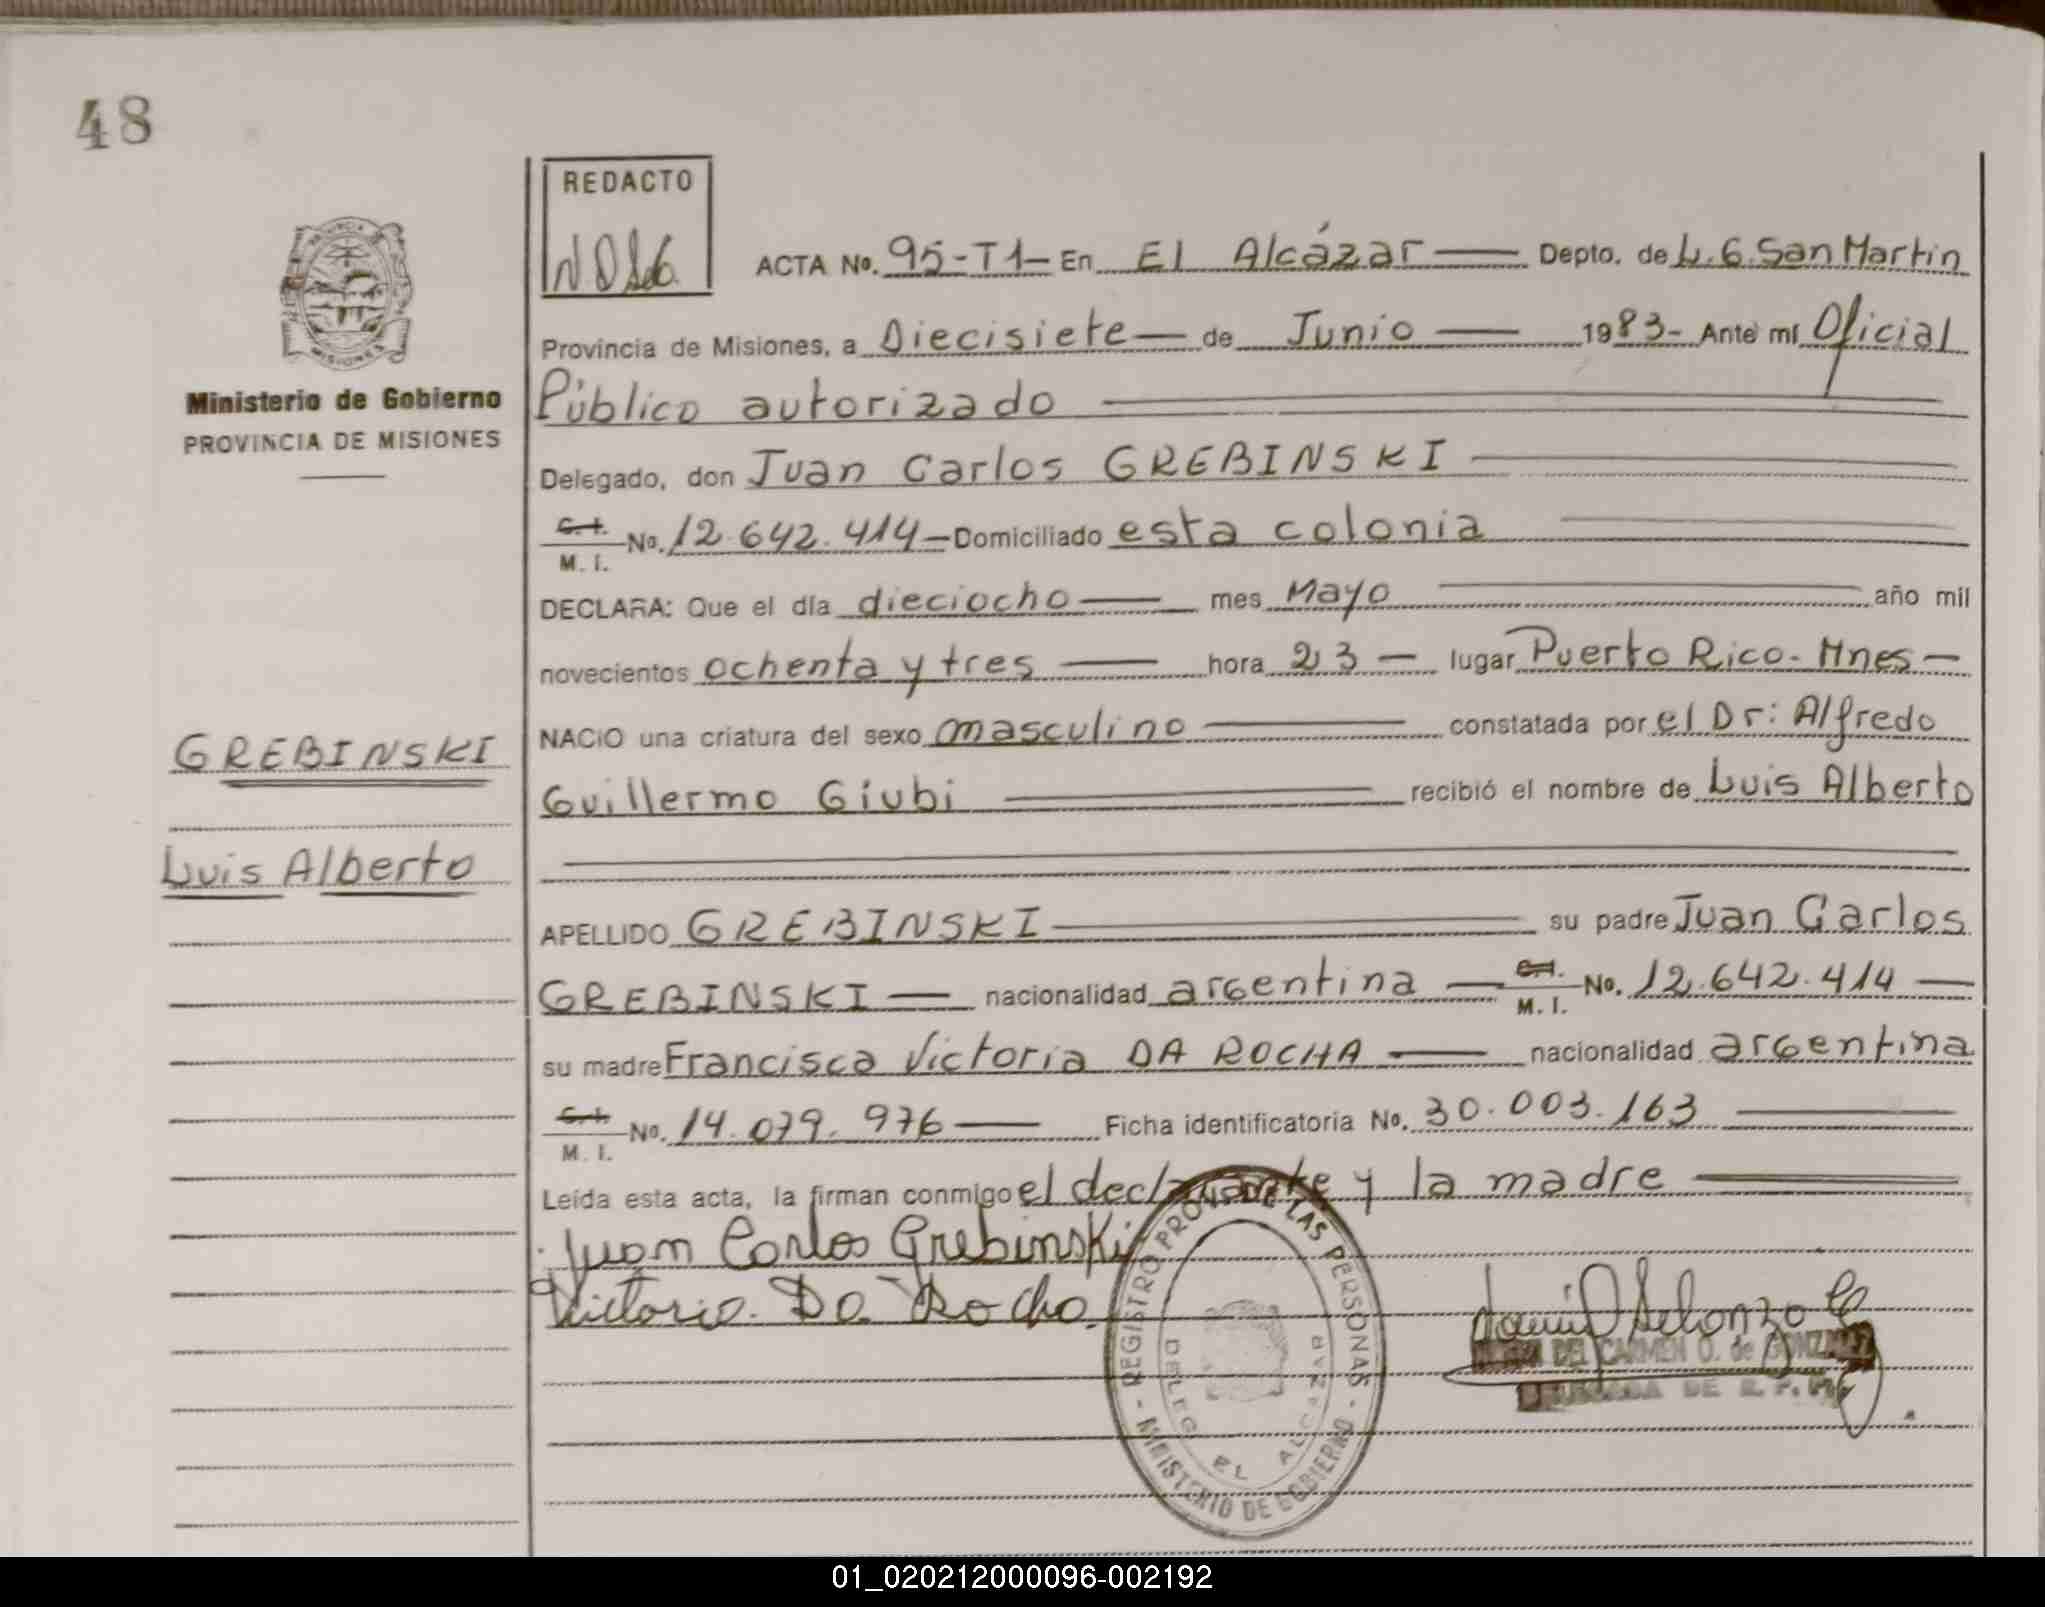 48
REDACTO
ACTA No. 95-T1- En El Alcázar — Depto. de L. G. San Martin
Provincia de Misiones, a Diecisiete — de Junio — 1983- Ante mí Oficial
Público autorizado
Ministerio de Gobierno
PROVINCIA DE MISIONES
Delegado, don Juan Carlos GREBINSKI
C.I. No. 12.642.414 — Domiciliado esta colonia
M. I.
DECLARA: Que el día dieciocho — mes Mayo — año mil
novecientos ochenta y tres — hora 23 — lugar Puerto Rico- Mnes —
NACIO una criatura del sexo masculino — constatada por el Dr: Alfredo
GREBINSKI
Guillermo Giubi — recibió el nombre de Luis Alberto
Luis Alberto
APELLIDO GREBINSKI — su padre Juan Carlos
GREBINSKI — nacionalidad argentina — C.I. No. 12.642.414 —
M. I.
su madre Francisca Victoria DA ROCHA — nacionalidad argentina
C.I. No. 14.079.976 — Ficha identificatoria No. 30.003.163
M. I.
Leída esta acta, la firman conmigo el declarante y la madre
Juan Carlos Grebinski
Victoria Da Rocha
REGISTRO PROV. DE LAS PERSONAS - MINISTERIO DE GOBIERNO -
DELEG. EL ALCAZAR
DEL CARMEN O. de GONZALEZ
DE R. P.
01_020212000096-002192